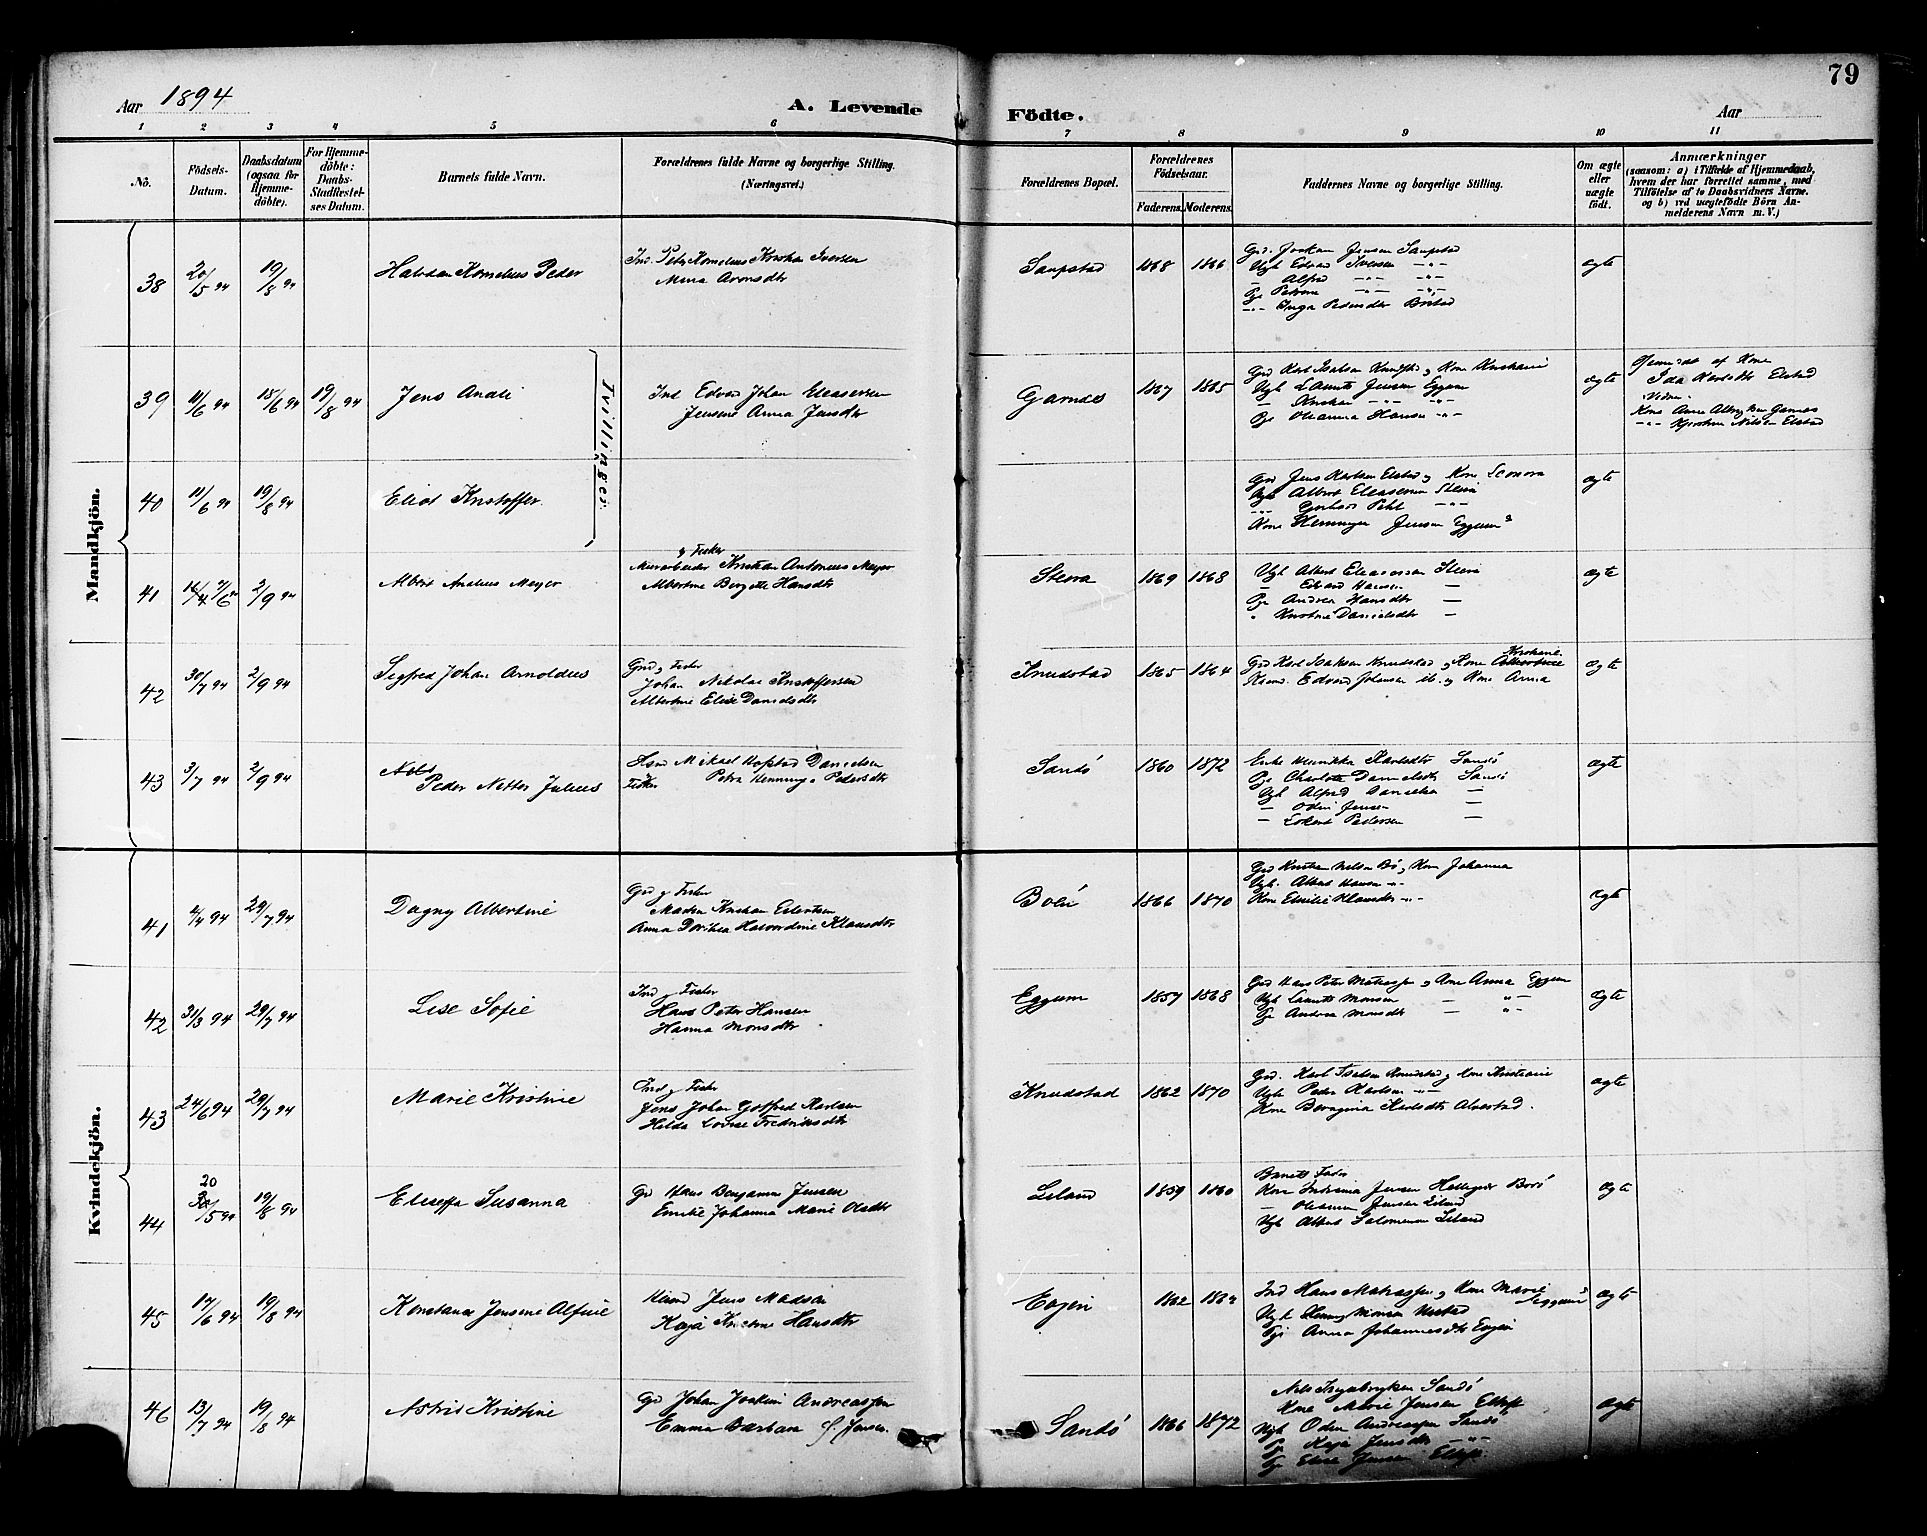 79
Aar 1894
A. Levende Födte.
Aar
1 2 3 4 5 6 7 8 9 10 11
No.
Födsels-Datum.
Daabsdatum (ogsaa for Hjemme-döbte).
For Hjemme-döbte: Daabs-Stadfæstel-ses Datum.
Barnets fulde Navn.
Forældrenes fulde Navne og borgerlige Stilling.
(Næringsvei.)
Forældrenes Bopæl.
Forældrenes Födselsaar.
Faderens. Moderens.
Faddernes Navne og borgerlige Stilling.
Om ægte eller uægte födt.
Anmærkninger
(saasom: a) i Tilfælde af Hjemmedaab,
hvem der har forrettet samme, med
Tilföielse af to Daabsvidners Navne.
og b) ved uægtefödte Börn An-
melderens Navn m. V.)
Mandkjön.
38 20/5 94 19/8 94 Halvdan Kornelius Peder
Ind. Peter Kornelius Kristian Iversen
Mina Aronsdtr
Saupstad 1868 1866
Grd. Joakim Jensen Saupstad
Ugk Edvard Iversen -"-
- Alfred -"- -"-
Pge Petrine -"- -"-
-"- Inga Pedersdtr Bøstad
ægte
39 11/6 94 15/6 94 19/8 94 Jens Andli
Tvillinger.
Ind Edvard Johan Eleasersen
Jensine Anna Jensdtr
Garnæs 1867 1865
Grd Karl Isaksen Knudstad og Kone Kristiane
Ugk Laurits Jensen Eggum
- Kristian -"- -"-
Pge Oleanna Hansen -"-
ægte
Hjemmedøbt af Kone
Ida Karlsdtr Elstad
Vidner
Kone Anne Garnæs
-"- Nilsen Elstad
40 11/6 94 19/8 94 Eliot Kristoffer
Grd Jens Karlsen Elstad og Kone Leonora
Ugk Albert Eleasersen Steira
Kone Henninge Jensen Eggum
ægte
41 14/4 94 2/9 94 Albert Analius Meyer
og Fisker
Murarbeider Kristian Antonius Meyer
Albertine Bergitte Hansdtr
Steira 1869 1868
Ugk Albert Eleasersen Steira
- Edvard Hansen -
Pge Andrea Hansdtr -
" Kristine Danielsdtr -
ægte
42 30/7 94 2/9 94 Sigfred Johan Arnoldus
Grd og Fisker
Johan Nikolai Kristoffersen
Albertine Elise Danielsdtr
Knudstad 1865 1864
Kristiane
Grd Karl Isaksen Knudstad og Kone Albertine
Edvard Johansen ib. og Kone Anna
ægte
43 3/7 94 2/9 94 Nils
Peder Netter Julius
Mikael Hofstad Danielsen
Fisker Petra Henninge Pedersdtr
Sandö 1860 1872
Enke Henrikka Sandö
Pge Charlotte Danielsdtr Sandö
Ugk Alfred Danielsen -
- Odin Jensen -
- Edvard Pedersen -
ægte
Kvindekjön.
41 4/4 94 29/7 94 Dagny Albertine
Grd og Fisker
Madsen Kristian Eilertsen
Anna Dorthea Hasvardine Klausdtr
Bøli 1866 1870
Grd Kristian Nilsen Bö og Kone Johanna
Ugk. Albert Hansen -"-
Kone Emilie Klausdtr -"-
ægte
42 31/3 94 29/7 94 Lise Sofie
Ind og Fisker
Hans Peter Hansen
Hanna Monsdtr
Eggum 1857 1868
Grd Hans Peter Matiassen og Kone Anna Eggum
Ugk Laurits Monsen - -"-
Pge Andrea Monsdtr - -"-
ægte
43 24/6 94 29/7 94 Marie Kristine
Ind og Fisker
Jens Johan Gotfred Karlsen
Hilda Lovise Fredriksdtr
Knudstad 1862 1870
Grd. Karl Isaksen Knudstad og Kone Kristiane
Ugk Peder Karlsen -"-
Kone Beragina Karlsdtr Alvestad.
ægte
44 20
30/5 94 19/8 94 Eliseffa Susanna
Grd Hans Benjamin Jensen
Emilie Johanna Marie Olsdtr
Liland 1859 1860
Barnets Fader
Kone Indianna Jensen Borö
- Oleanna Jensen Liland
Ugk Albert Salomonsen Liland
ægte
45 17/6 94 19/8 94 Konstanse Jensine Alfine
Jens Madsen
Kaja Kristine Hansdtr
Engen 1862 1862
Ind Hans Matiassen og Kone Marie
Eggum
Ugk Henning Monsen Hestad
Pge Anna Johannesdtr Engen
ægte
46 13/7 94 19/8 94 Astrid Kristine
Grd Johan Joakim Andreassen
Emma Barbara f. Jensen.
Sandö 1866 1872
Nils Sandö
Kone Marie Jensen
Ugk Odin Andreassen Sandö
Pge Kaja Jensdtr -"-
Pge Elise Jensen
ægte